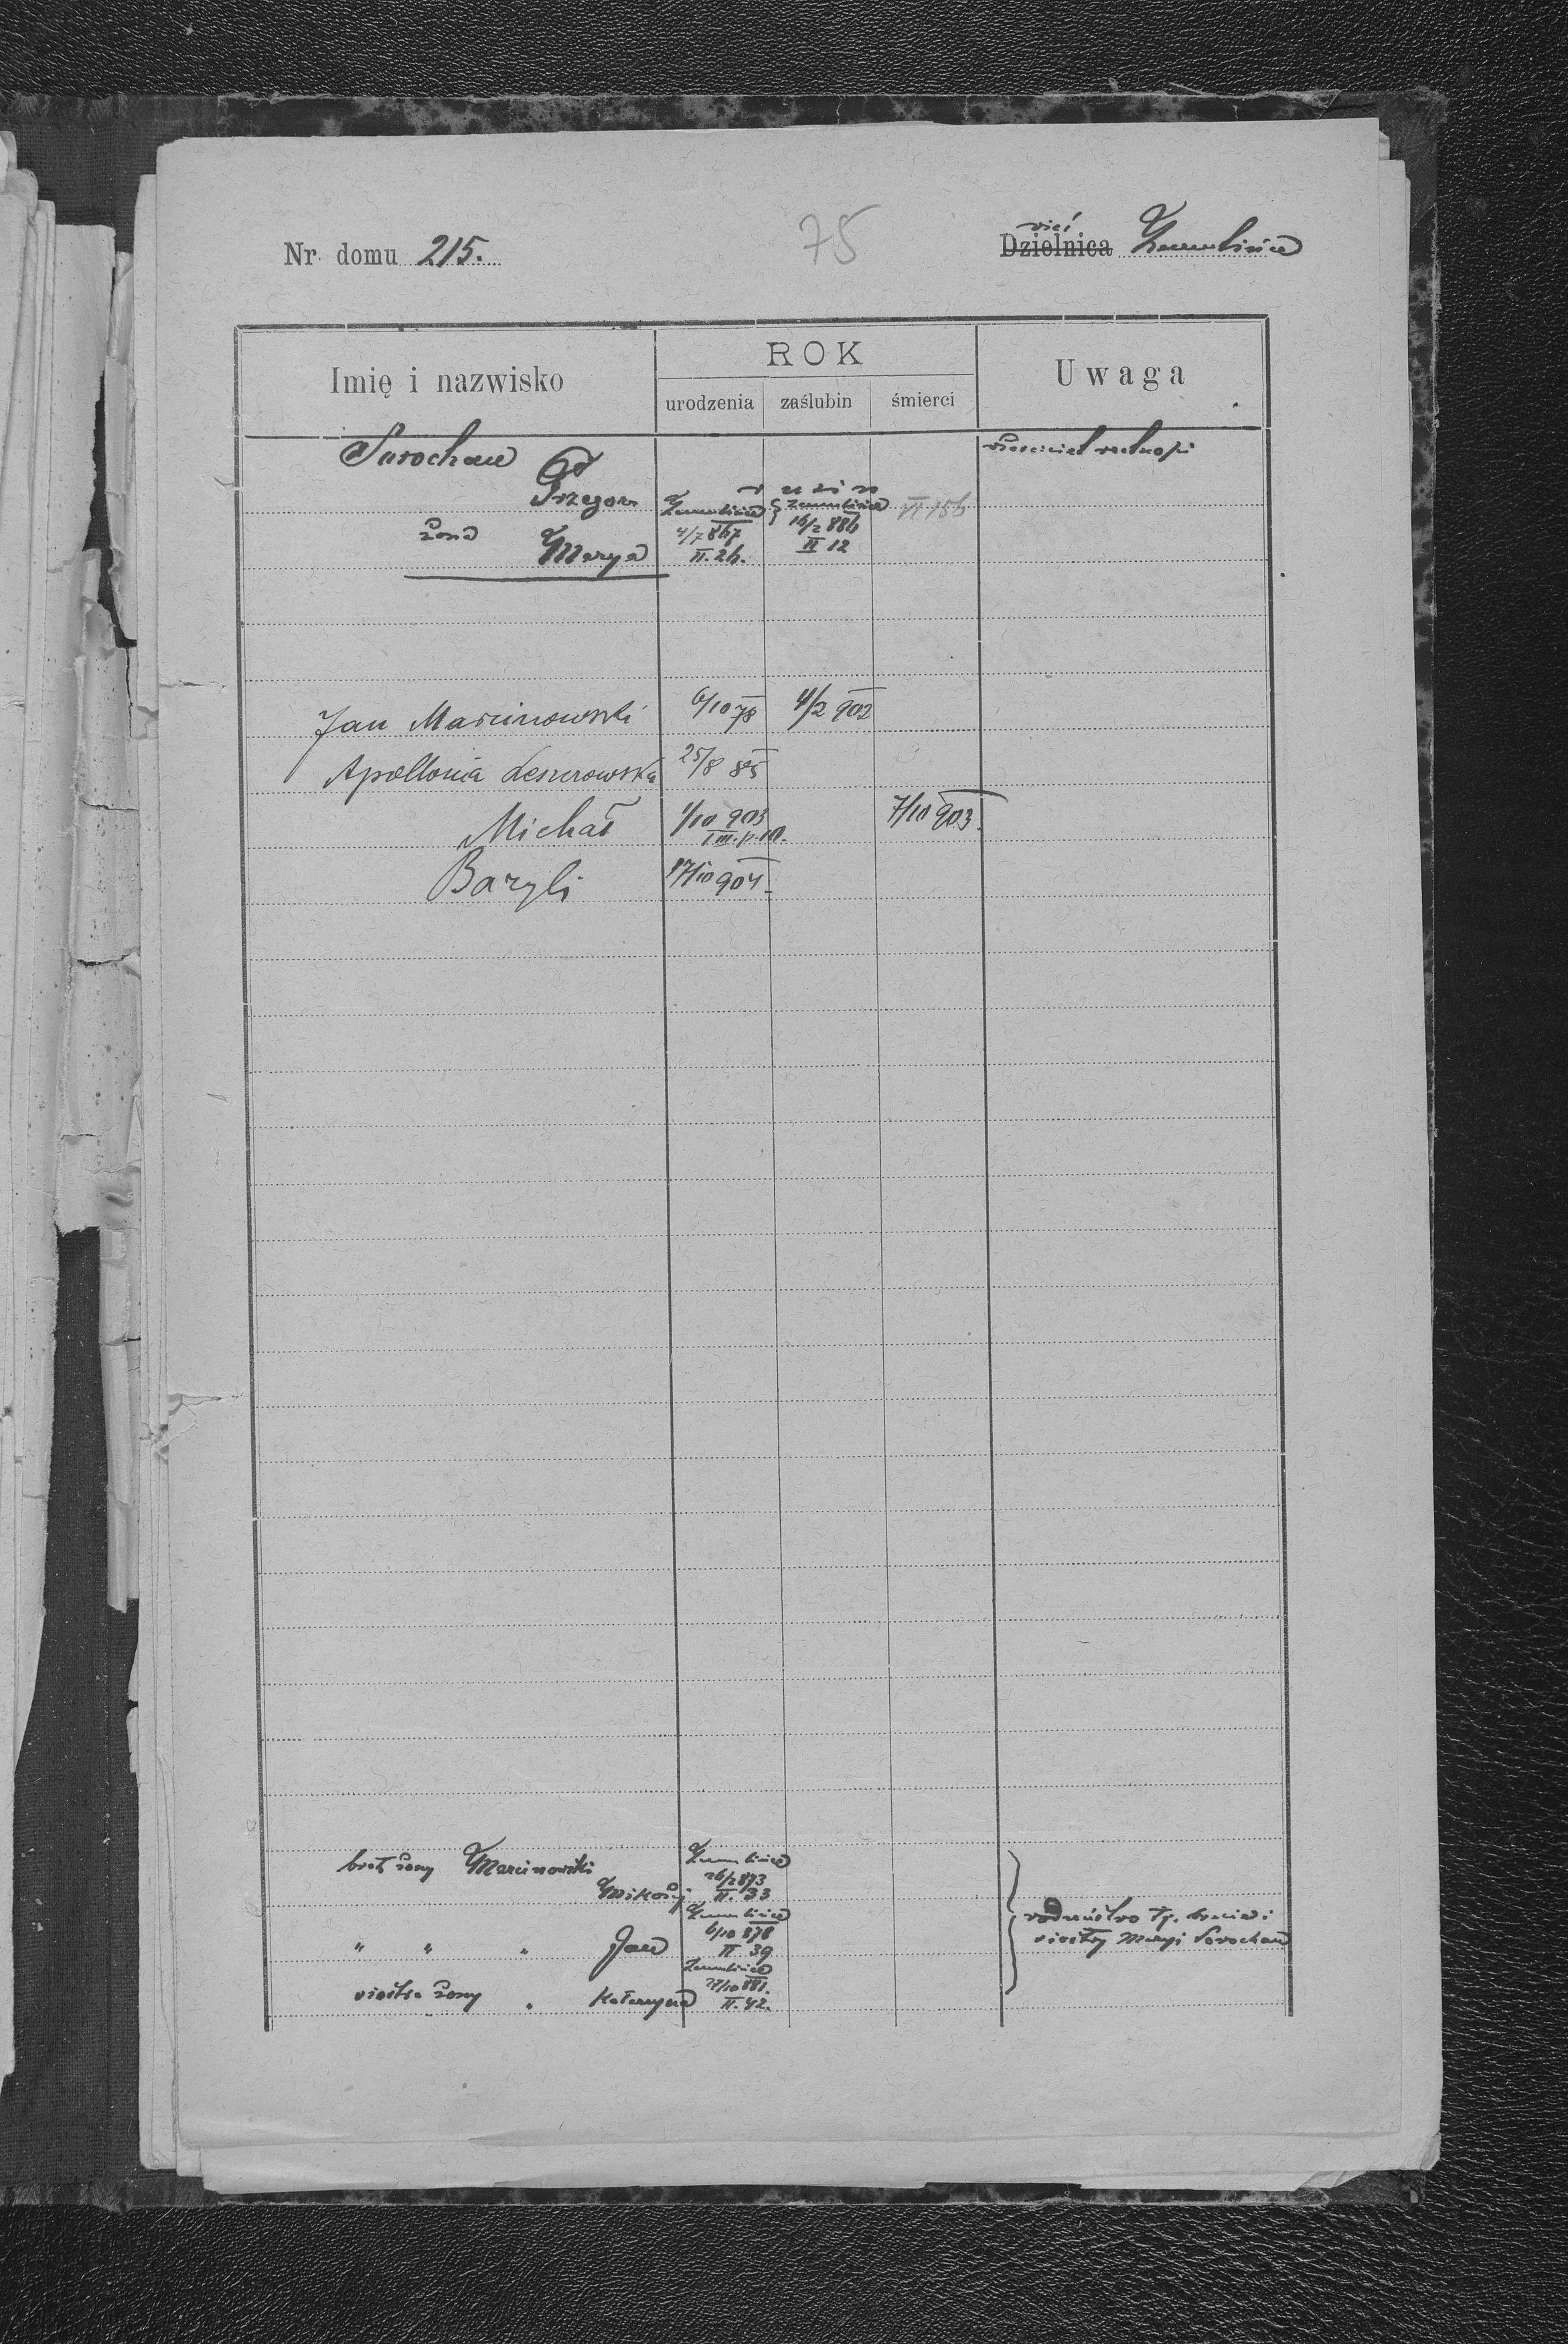 Nr domu 215.
75
wieś
Dzielnica
Imię i nazwisko
ROK
urodzenia zaślubin śmierci
Uwaga
Sorochan
Grzegorz
VI 156
żona Marya
4/7 867 16/2 886
II. 26. II 12
Jan Marcinowski 6/10 78 4/2 902
Apollonia 25/8 85
Michał 1/10 903 7/10 903.
Bazyli 17/10 904.
brat żony Marcinowski
Mikołaj 26/2 873
II. 33
" " " Jan 6/10 878
II 39
siostra żony " Katarzyna 27/10 881.
II. 42.
siostry Maryi Sorochan